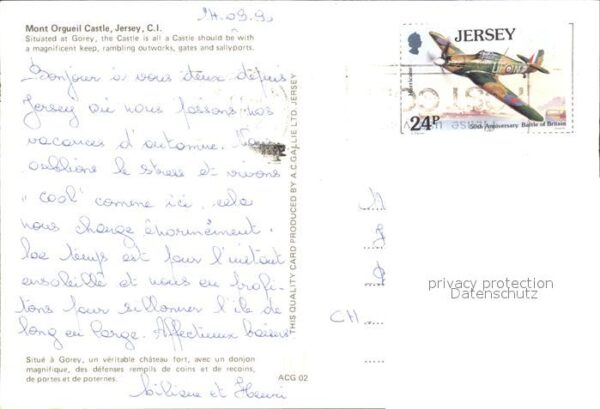 14.09.90
Mont Orgueil Castle, Jersey, C.I.
Situated at Gorey, the Castle is all a Castle should be with
a magnificent keep, rambling outworks, gates and sallyports.
Bonjour à vous deux depuis
Jersey où nous passons nos
vacances d'automne. Nous
oublions le stress et vivons
"cool" comme ici, cela
nous change énormément.
Le temps est pour l'instant
ensoleillé et nous en profi-
tons pour sillonner l'île de
long en large. Affectueux baisers
Situé à Gorey, un véritable château fort, avec un donjon
magnifique, des défenses remplis de coins et de recoins,
de portes et de poternes.
ACG 02
Liliane et Henri
THIS QUALITY CARD PRODUCED BY A.C.GALLIE LTD. JERSEY
JERSEY
Hurricane
24P
50th Anniversary Battle of Britain
CH
privacy protection
Datenschutz